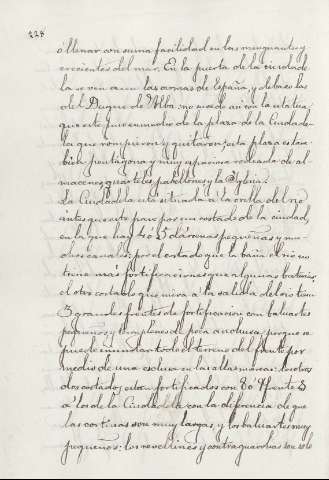 228
o llenar con suma facilidad en las menguantes y
crecientes del mar. En la puerta de la ciudade
la se ven aun las armas de España, y debaxo las
del Duque de Alba, no sucede asi con la estatua
que este puso en medio de la plaza de la Ciudade-
la que rompieron y quitaron; esta plaza es tam-
bien pentagona y muy espaciosa rodeada de al-
macenes quarteles pabellones y la Yglesia.
La Ciudadela está situada a la orilla del rio
antes que este pase por un costado de la ciudad,
en la que hay 4 ó 5 dársenas pequeñas y mu-
chos canales: por el costado que la baña el rio no
tiene más fortificaciones que algunas baterias;
el otro costado que mira a la salida del rio tiene
3 grandes frentes de fortificacion con baluartes
pequeños y terraplenes de poca anchura, porque se
puede inundar todo el terreno del frente por
medio de una esclusa en las altas mareas: los otros
dos costados estan fortificados con 8 ó 9 frentes
á los de la Ciudadela con la diferencia de que
las cortinas son muy largas, y los baluartes muy
pequeños: los revellines y contraguardias son solo